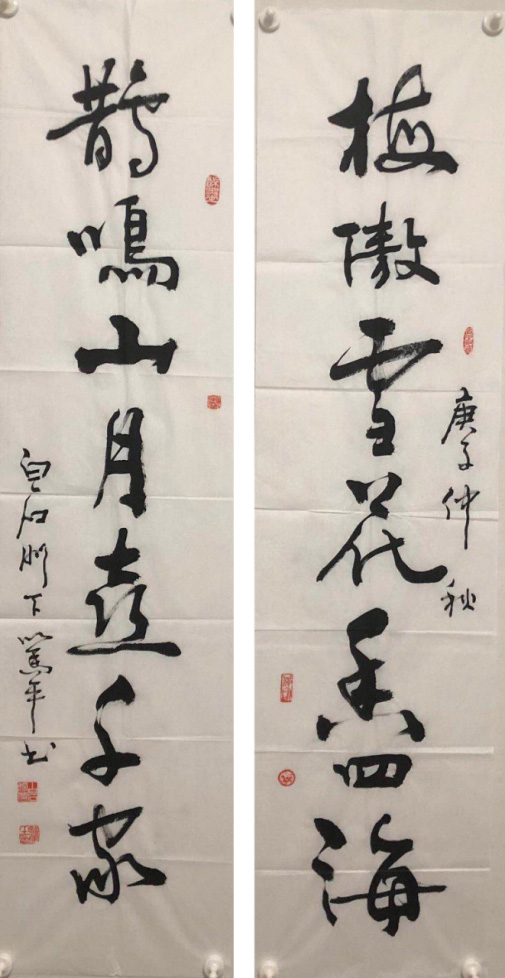 梅傲雪花香四海
庚子仲秋
鹊鸣山月喜千家
白石门下笃平书